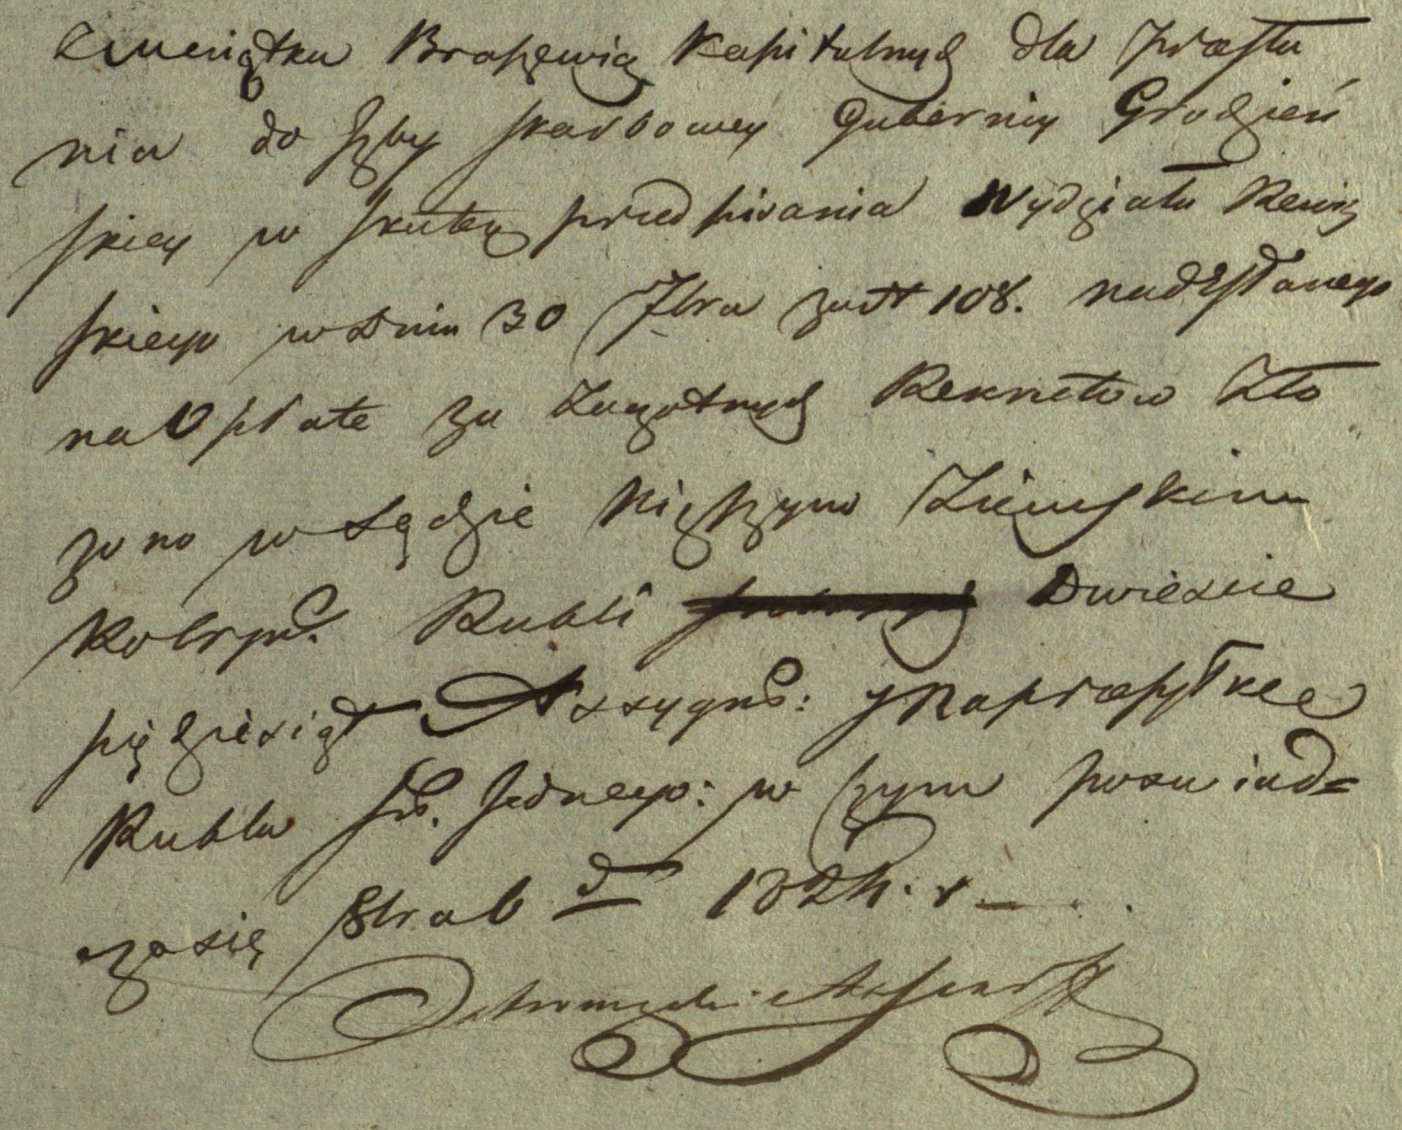 Z maiątku Braszewicz Kapitalnych dla Przesła
nia do Jzby skarbowey Gubernij Grodzień
skiey w skutek przedpisania Wydziału Rewiz
skiego w Dniu 30 7bra za N 108. nadesłanego
na Opłate za Zaczotnych Rekrutow Zło
zono w Sądzie Niższym Ziemskim
Kobryń. Rubli Dwiescie
pięcdziesiąt Assygna: y Na przesyłkę
Rubla sr. jednego: w czym poswiad=
cza się 8bra 6 d 1824. r